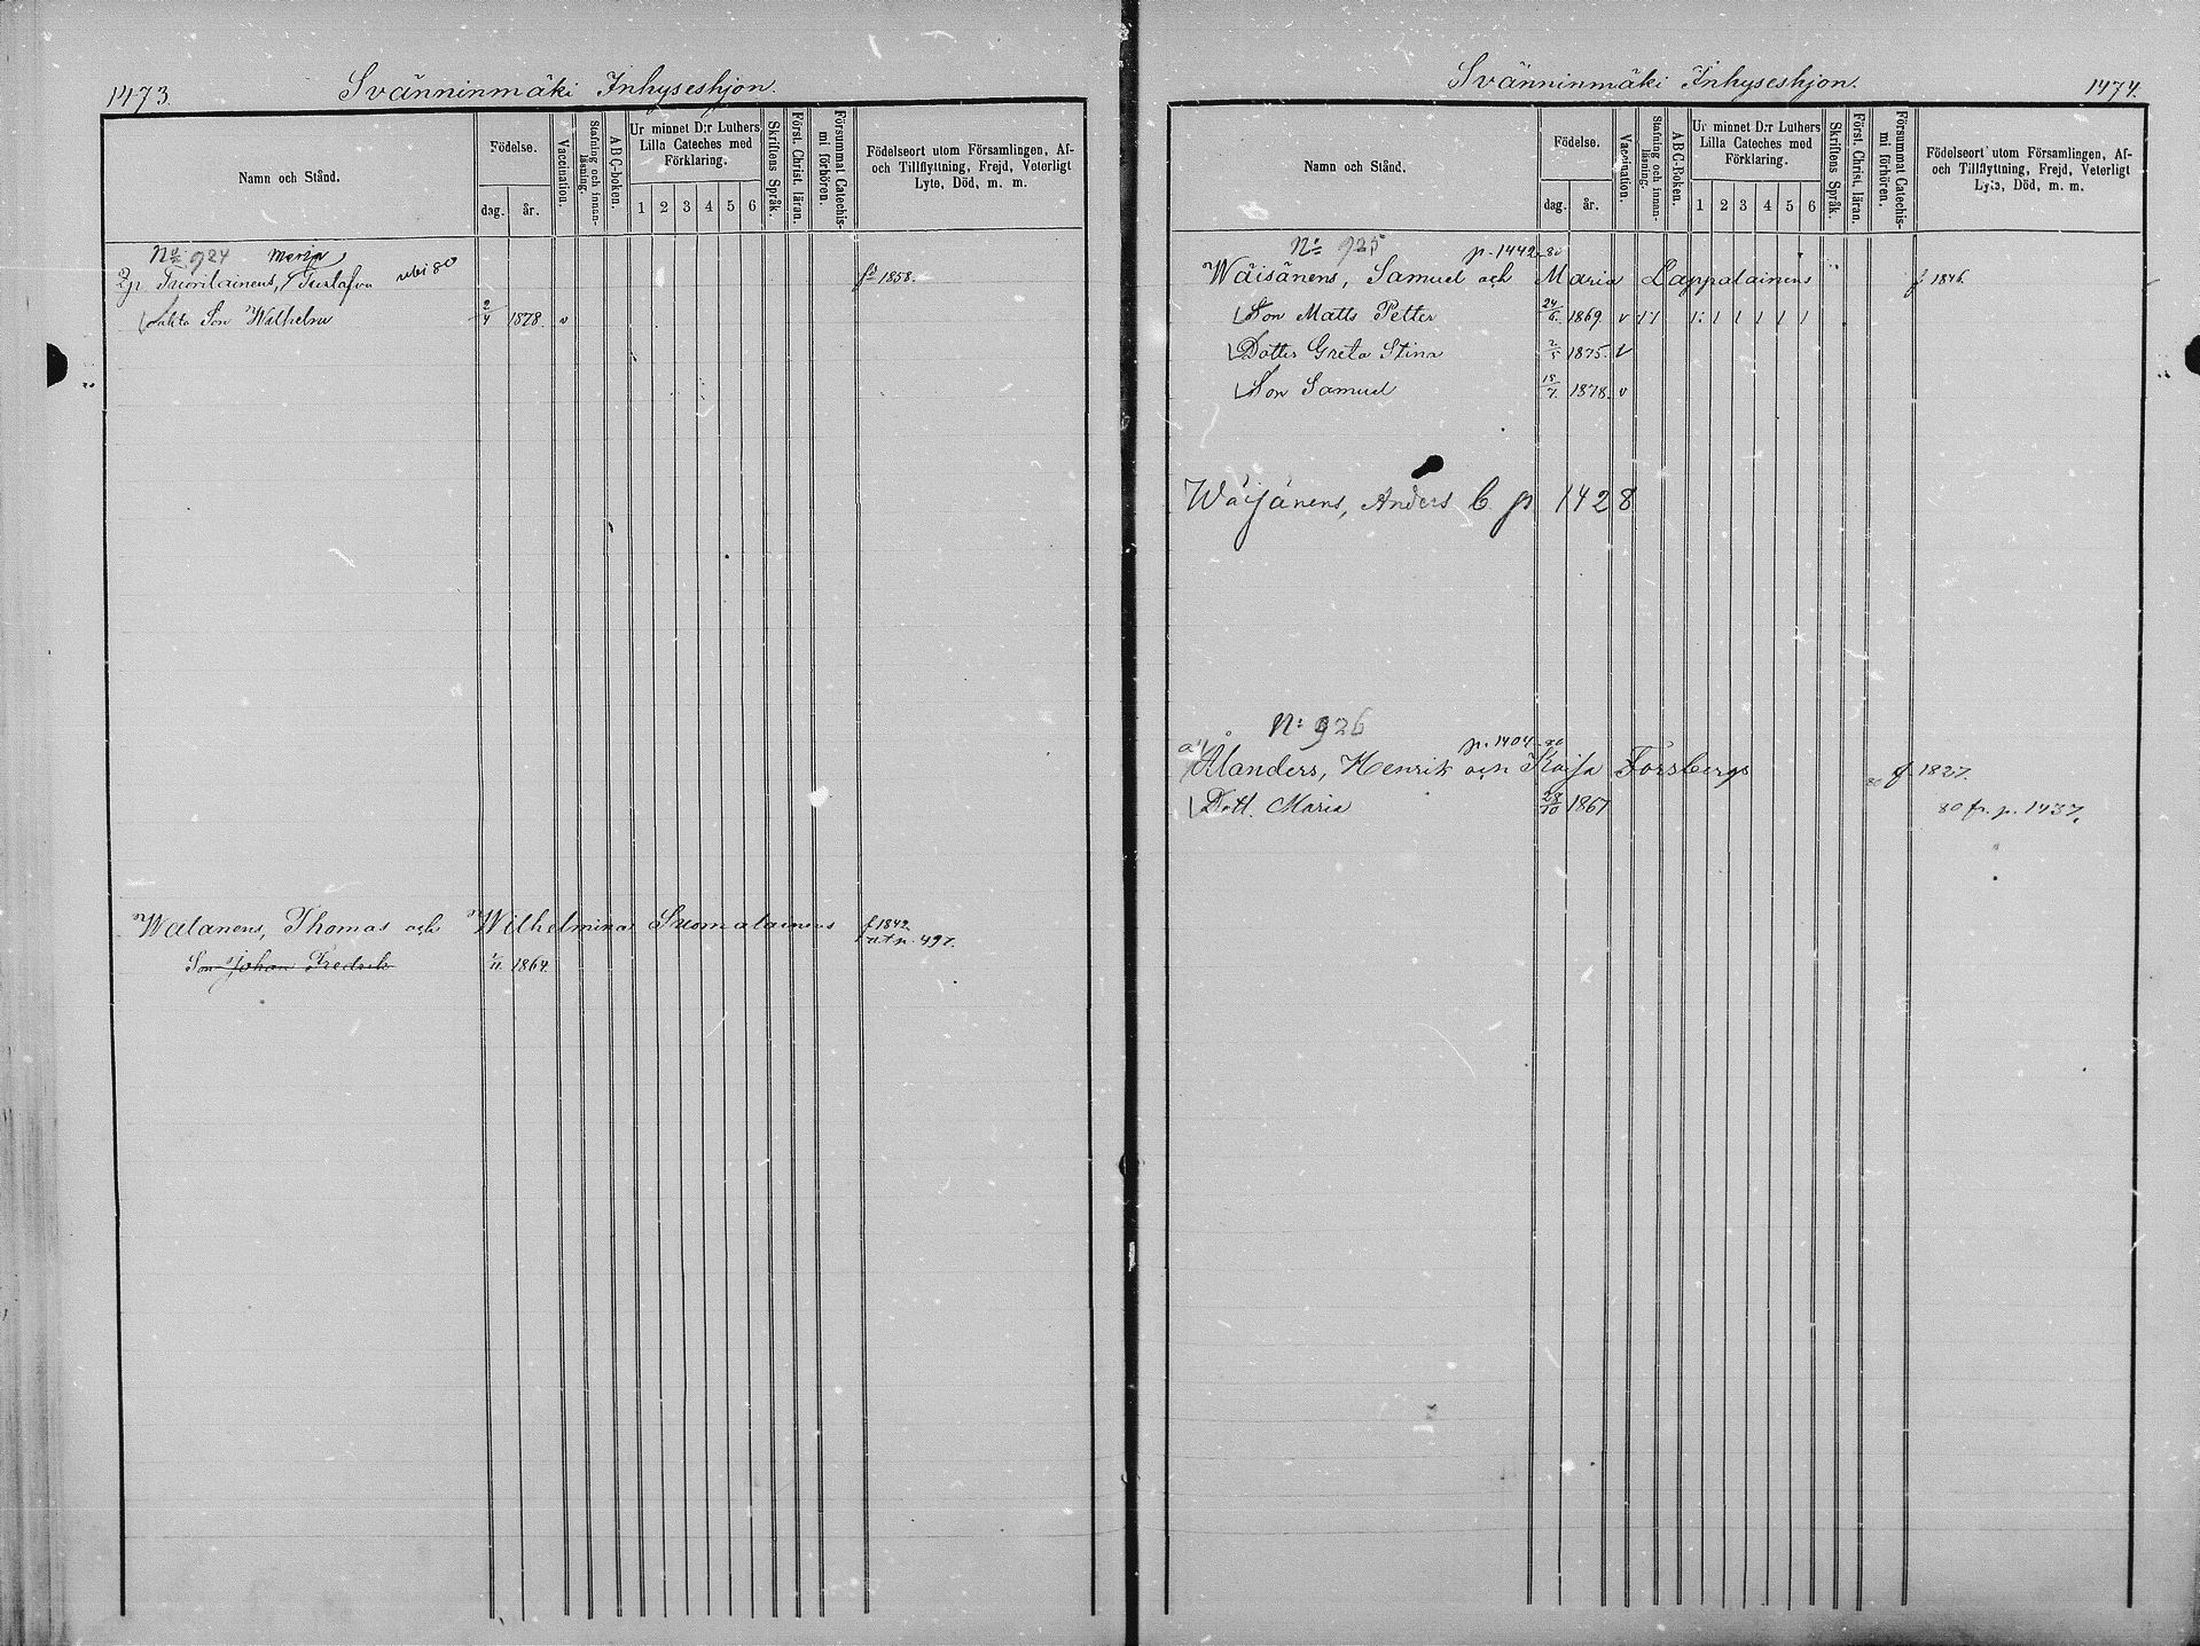 1473.
Svänninmäki Inhyseshjon.
Namn och Stånd.
Födelse.
dag.
år.
Vaccination.
Stafning och innan-läsning.
ABC-boken.
Ur minnet D:r Luthers
Lilla Cateches med
Förklaring.
1 2 3 4 5 6
Skriftens Språk.
Först. Christ. läran.
Försummat Catechis-
mi förhören.
Födelseort utom Församlingen, Af-
och Tillflyttning, Frejd, Veterligt
Lyte, Död, m. m.
No 924 Maria
Gustafva ubi 80 1858.
Son Wilhelm 2/4 1878. v
Watanens, Thomas och Wilhelmina Suomalainens f 1842
497.
Son Johan Fredrik 1/11 1864.
Svänninmäki Inhyseshjon.
1474.
Namn och Stånd.
Födelse.
dag.
år.
Vaccination.
Stafning och innan-läsning.
ABC-Boken.
Ur minnet D:r Luthers
Lilla Cateches med
Förklaring.
1 2 3 4 5 6
Skriftens Språk.
Först. Christ. läran.
Försummat Catechis-
mi förhören.
Födelseort utom Församlingen, Af-
och Tillflyttning, Frejd, Veterligt
Lyte, Död, m. m.
No 925 p. 1442 80
Wäisänens, Samuel och Maria Lappalainens f 1846
Son Matts Petter 24/6 1869 v
Dotter Greta Stina 2/5 1875. v
Son Samuel 15/7 1878. v
Wäisänens, Anders C. p 1428
N: 926
p. 1404 80
Ålanders, Henrik och Kajsa Forsbergs 80 f 1827.
Dott. Maria 28/10 1867 80 fr. p. 1437.